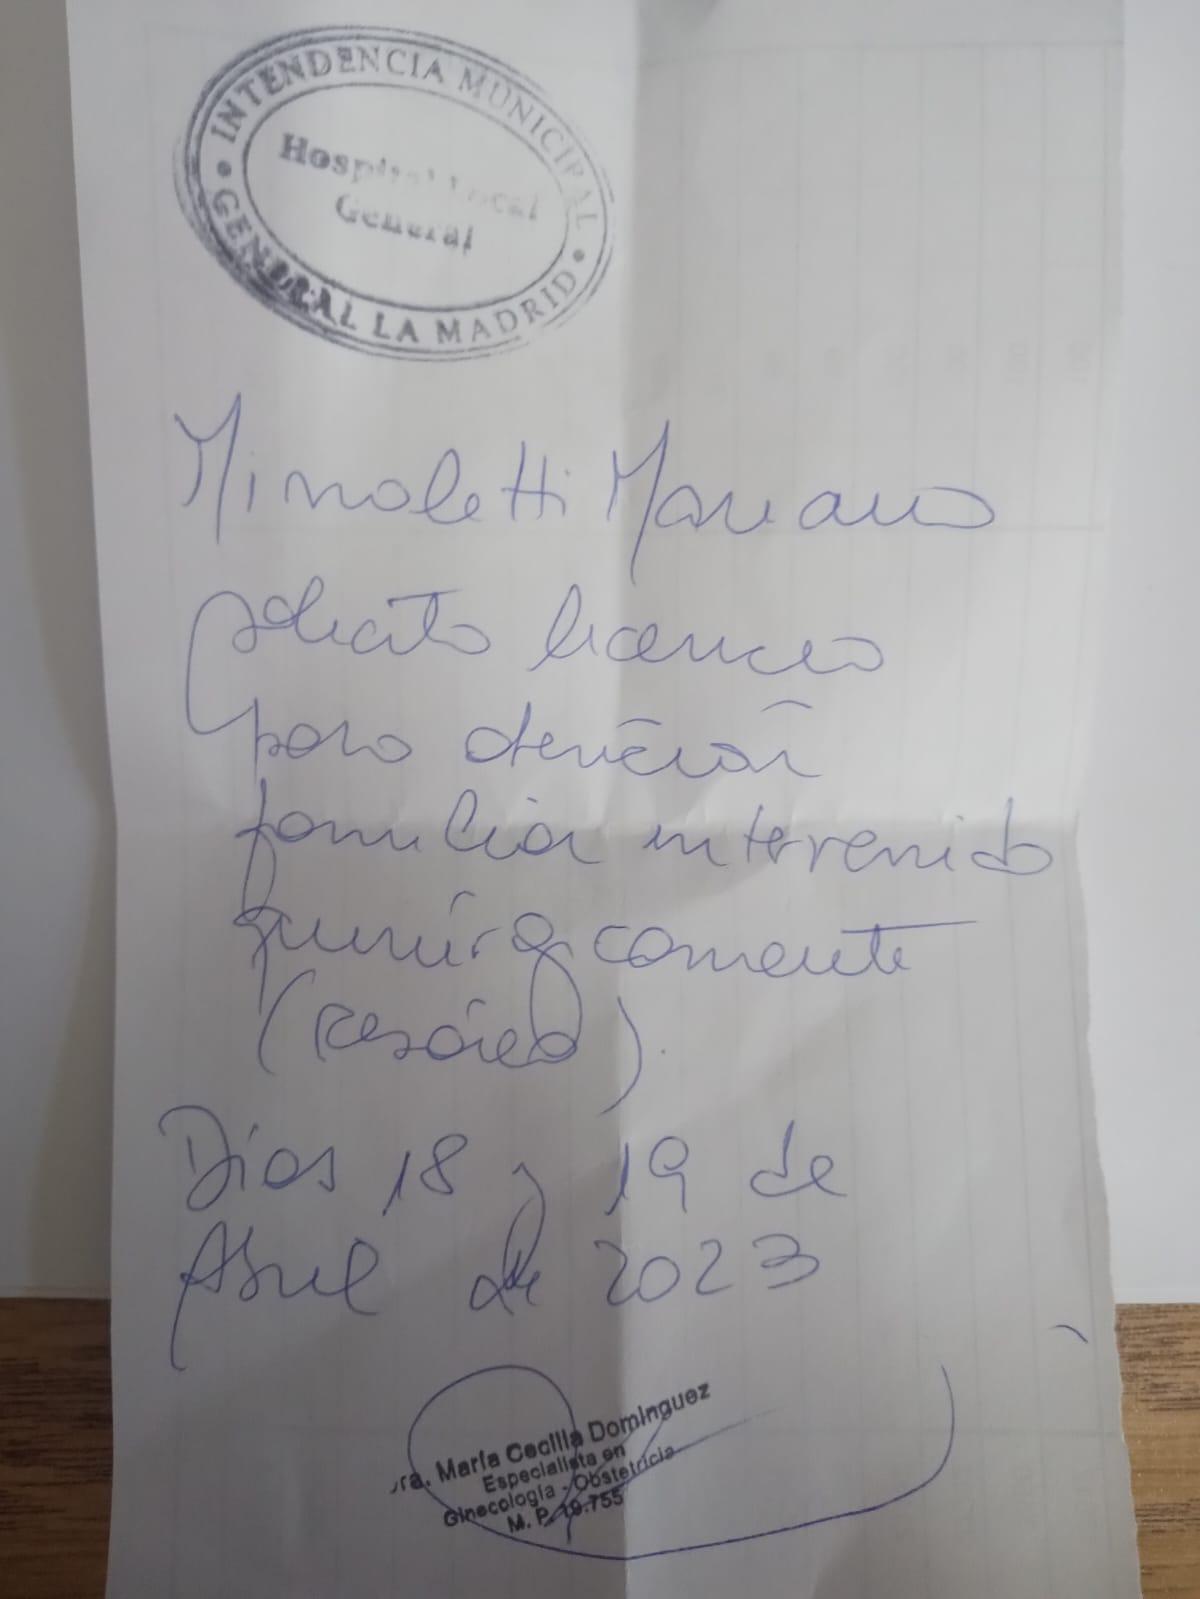 INTENDENCIA MUNICIPAL
Hospital Local
General
GENERAL LA MADRID
Minoletti Mariano
solicito licencia
para atención
familiar intervenido
quirúrgicamente
(cesárea).
Días 18 y 19 de
Abril de 2023
Dra. María Cecilia Dominguez
Especialista en
Ginecología - Obstetricia
M. P. 19.755